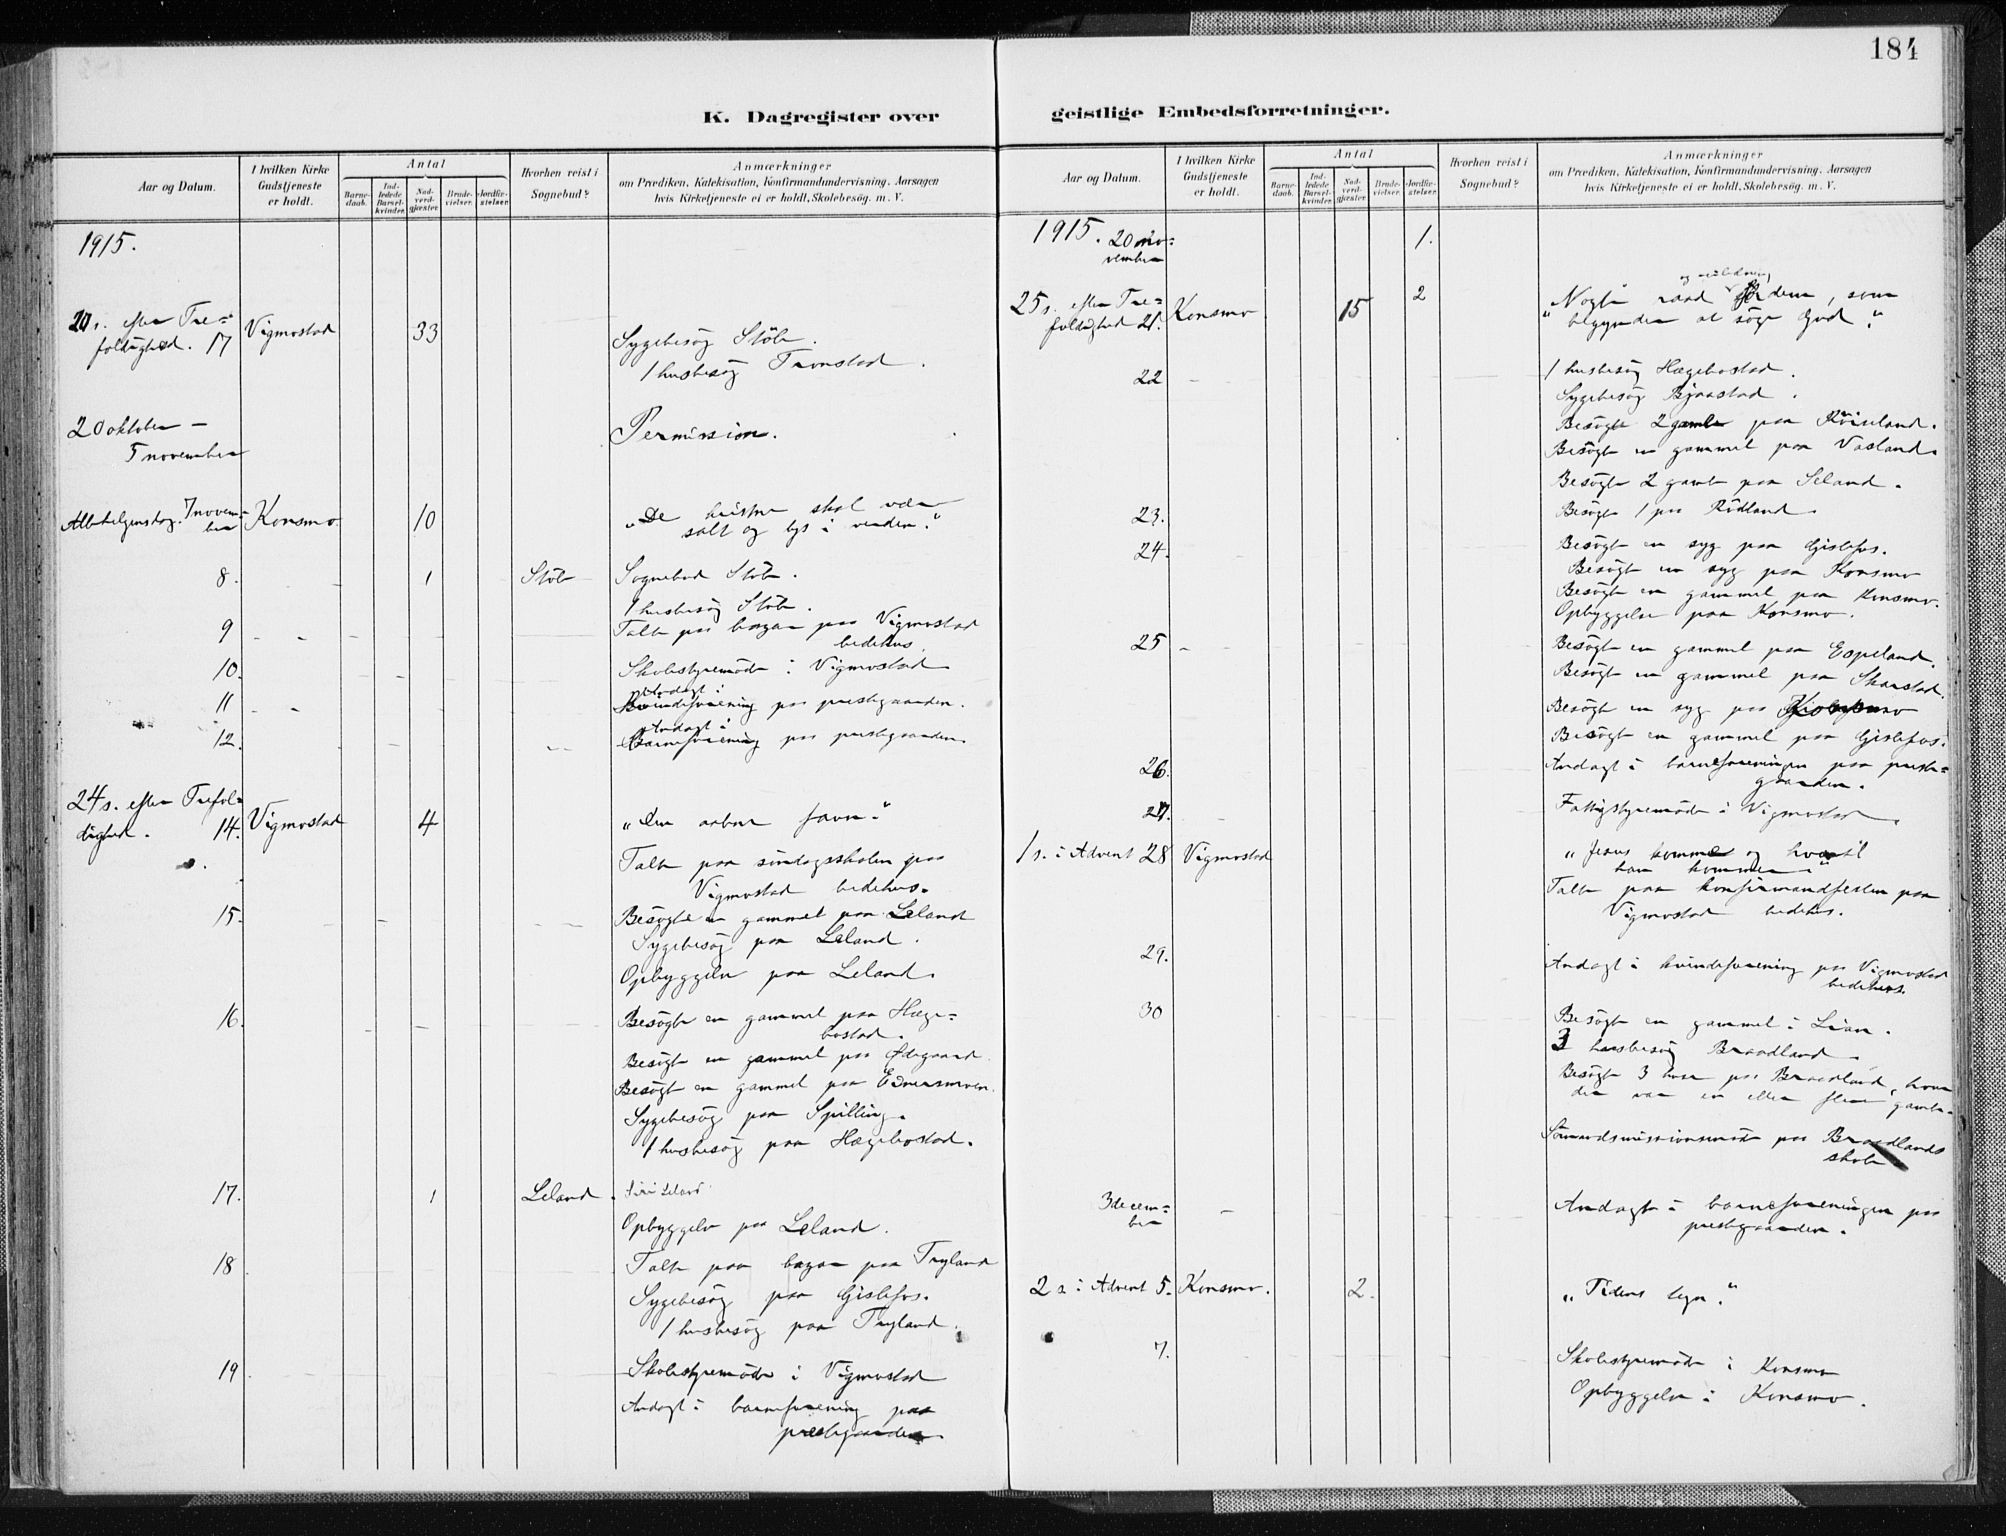 184
K. Dagregister over
Aar og Datum.
I hvilken Kirke
Gudstjeneste
er holdt.
Antal
Barne-
daab.
Ind-
ledede
Barsel-
kvinder.
Nad-
verd-
gjæster.
Brude-
vielser.
Jordfæ-
stelser.
Hvorhen reist i
Sognebud?
Anmærkninger
om Prædiken, Katekisation, Konfirmandundervisning. Aarsagen
hvis Kirketjeneste ei er holdt, Skolebesøg. m. V.
1915.
20 s. efter Tre-
foldighed. 17 Vigmostad 33
Sygebesøg Støle.
1 husbesøg Tronstad.
20 oktober –
5 november
Permission.
Allehelgensdag. 7 novem-
ber Konsmo. 10
"De kristne skal være
salt og lys i verden."
8. 1 Støle Sognebud Støle.
1 husbesøg Støle.
9 Talte paa bazar paa Vigmostad
bedehus.
10. Skolestyremøde i Vigmostad
Andagt i
11 Kvindeforening paa prestegaarden.
Andagt i
12. Barneforening paa prestegaarden.
24 s. efter Trefol-
dighed. 14. Vigmostad 4 "Den aabne favn."
Talte paa søndagsskolen paa
Vigmostad bedehus.
15. Besøgte en gammel paa Leland
Sygebesøg paa Leland.
Opbyggelse paa Leland.
16. Besøgte en gammel paa Hæge-
bostad.
Besøgte en gammel paa Ødegaard
Besøgte en gammel paa
Sygebesøg paa Spilling.
1 husbesøg paa Hægebostad.
17. 1 Leland. Siri Leland
Opbyggelse paa Leland.
18 Talte paa bazar paa Tryland
Sygebesøg paa Gislefos.
1 husbesøg paa Tryland.
19 Skolestyremøde i Vigmostad
Andagt i barneforening paa
prestegaarden.
geistlige Embedsforretninger.
Aar og Datum.
I hvilken Kirke
Gudstjeneste
er holdt.
Antal
Barne-
daab.
Ind-
ledede
Barsel-
kvinder.
Nad-
verd-
gjæster.
Brude-
vielser.
Jordfæ-
stelser.
Hvorhen reist i
Sognebud?
Anmærkninger
om Prædiken, Katekisation, Konfirmandundervisning. Aarsagen
hvis Kirketjeneste ei er holdt, Skolebesøg. m. V.
1915. 20 no-
vember 1.
og veiledning
25 s. efter Tre-
foldighed 21. Konsmo 15 2 "Nogle raad for dem, som
begynder at søge Gud."
22 1 husbesøg Hægebostad.
Sygebesøg Bjaastad.
Besøgte 2 gamle paa Røiseland.
Besøgte en gammel paa Vasland.
Besøgte 2 gamle paa Seland.
23. Besøgte 1 paa Rødland.
24. Besøgte en syg paa Gislefos.
Besøgte en syg paa Konsmo
Besøgte en gammel paa Konsmo.
Opbyggelse paa Konsmo.
25 Besøgte en gammel paa Espeland.
Besøgte en gammel paa Skarstad.
Besøgte en syg paa Konsmo
Besøgte en gammel paa Gislefos.
26. Andagt i barneforeningen paa preste-
gaarden.
27. Fattigstyremøde i Vigmostad.
1 s. i Advent 28 Vigmostad "Jesus kommer og hvortil
han kommer."
Talte paa konfirmandfesten paa
Vigmostad bedehus.
29. Andagt i kvindeforening paa Vigmostad
bedehus.
30 Besøgte en gammel i Lian.
3 husbesøg Braadland.
Besøgte 3 huse paa Braadland, hvor
der var en eller flere gamle.
Sømandsmissionsmøde paa Braadlands
skole
3 decem-
ber Andagt i barneforeningen paa
prestegaarden.
2 s. i Advent 5. Konsmo. 2. "Tidens tegn."
7. Skolestyremøde i Konsmo
Opbyggelse i Konsmo.